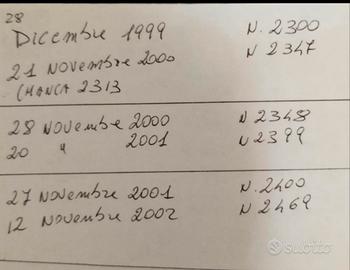 28
Dicembre 1999 N. 2300
21 Novembre 2000 N 2347
(MANCA 2313
28 Novembre 2000 N 2348
20 " 2001 N 2399
27 Novembre 2001 N. 2400
12 Novembre 2002 N 2469
subito